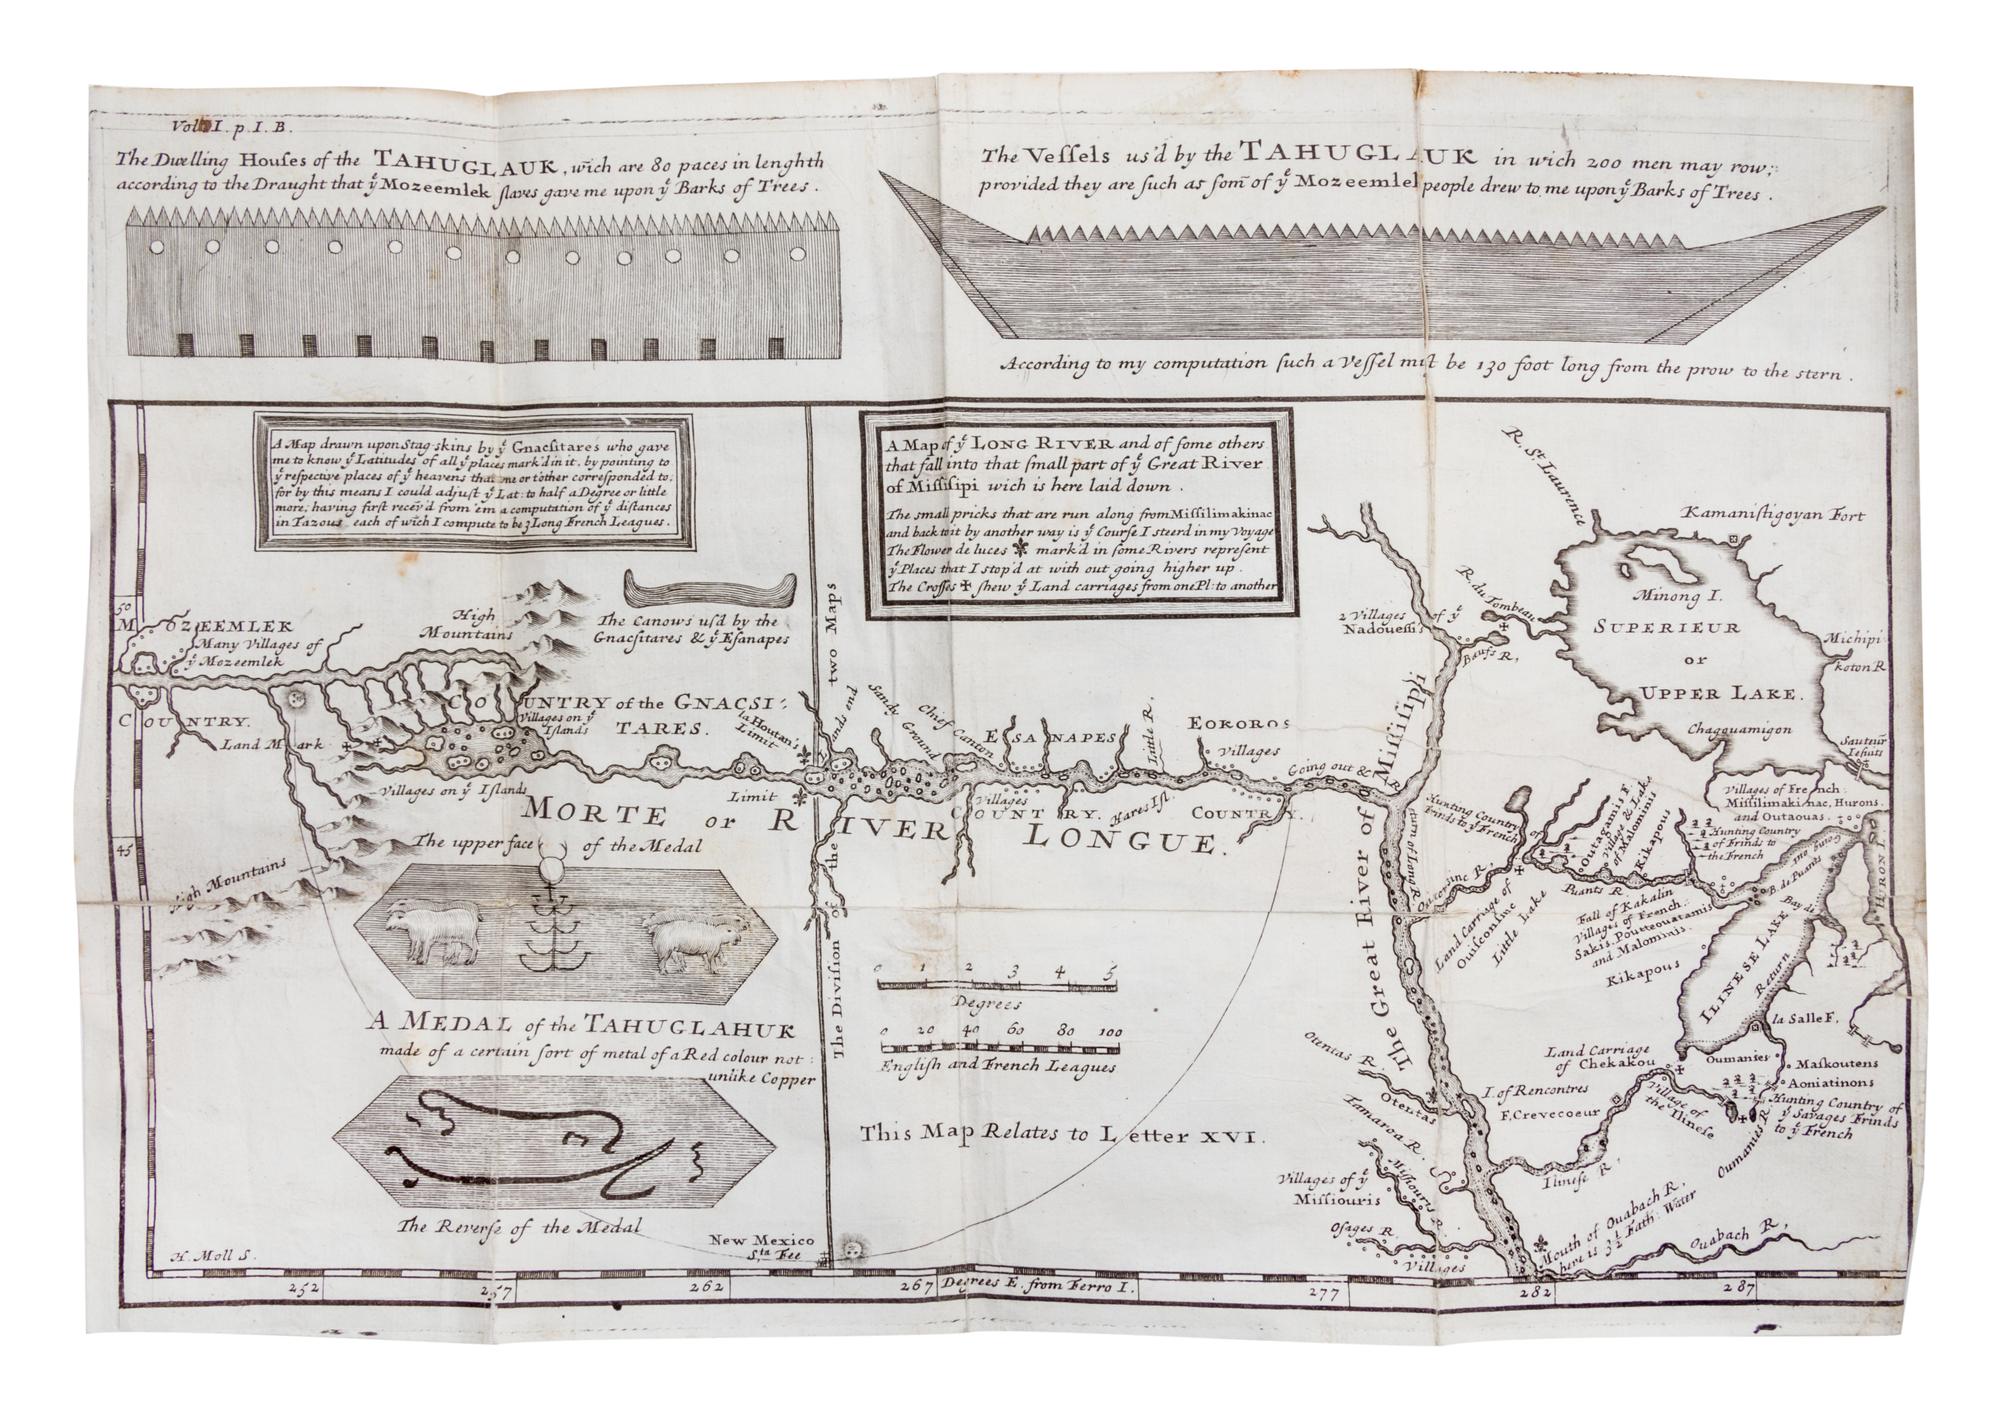 Vol. I. p. I. B.
The Dwelling Houses of the TAHUGLAUK, wich are 80 paces in lenghth
according to the Draught that yͤ Mozeemlek slaves gave me upon yͤ Barks of Trees.
The Vessels us'd by the TAHUGLAUK in wich 200 men may row;
provided they are such as som̄ of yͤ Mozeemlek people drew to me upon yͤ Barks of Trees.
According to my computation such a Vessel must be 130 foot long from the prow to the stern.
A Map drawn upon Stag-skins by yͤ Gnacsitares who gave
me to know yͤ Latitudes of all yͤ places mark'd in it, by pointing to
yͤ respective places of yͤ heavens that one or t'other corresponded to;
for by this means I could adjust yͤ Lat: to half a Degree or little
more; having first recev'd from 'em a computation of yͤ distances
in Tazous each of wich I compute to be 3 Long French Leagues.
A Map of yͤ LONG RIVER and of some others
that fall into that small part of yͤ Great River
of Missisipi wich is here laid down.
The small pricks that are run along from Missilimakinac
and back to it by another way is yͤ Course I steer'd in my Voyage
The Flower de luces mark'd in some Rivers represent
yͤ Places that I stop'd at with out going higher up.
The Crosses shew yͤ Land carriages from one Pl: to another
R. St. Laurence
Kamanistigoyan Fort
Minong I.
SUPERIEUR
or
UPPER LAKE.
Chagouamigon
Michipi
koton R
Sauteur
Iesuits
R. du Tombeau
2 Villages of yͤ
Nadouessis
Bœufs R.
50
45
MOZEEMLEK
Many Villages of
yͤ Mozeemlek
COUNTRY.
Land Mark
High
Mountains
The Canows us'd by the
Gnacsitares & yͤ Esanapes
COUNTRY of the GNACSI-
TARES.
Villages on yͤ
Islands
la Houtan's
Limit
Villages on yͤ Islands
Limit
two Maps
The Division of the
Sandy Ground
Chief Canton
ESANAPES
Little R.
EOKOROS
Villages
Going out &
Return of Long R.
Villages
COUNTRY.
Hares Isl.
COUNTRY.
MORTE or RIVER LONGUE.
High Mountains
The upper face of the Medal
A MEDAL of the TAHUGLAHUK
made of a certain sort of metal of a Red colour not
unlike Copper
The Reverse of the Medal
H. Moll S.
New Mexico
Sta Fee
0 1 2 3 4 5
Degrees
0 20 40 60 80 100
English and French Leagues
This Map Relates to Letter XVI.
The Great River of Missisipi
Hunting Country of
Frinds to yͤ French
Outagamis F.
Village & Lake
of Malominis
Kikapous
Villages of French
Missilimakinac, Hurons.
and Outaouas.
Hunting Country
of Frinds to
the French
Going out
B. de Puants
Bay de
HURON L.
Ouisconsinc R.
Puants R
Land Carriage of
Ouisconsinc
Little Lake
Fall of Kakalin
Villages of French.
Sakis, Pouteouatamis
and Malominis.
Kikapous
ILINESE LAKE
Return
la Salle F.
Oumanies
Land Carriage
of Chekakou
Maskoutens
Aoniatinons
Hunting Country of
yͤ Savages Frinds
to yͤ French
Village of
the Ilinese
Oumanies R.
I. of Rencontres
F. Crevecoeur
Ilinese R.
Otentas R.
Otentas
Tamaroa R.
Villages of yͤ
Missiouris
Missouris R.
Osages R.
Villages
Mouth of Ouabach R.
here is 3½ Fath: Water
Ouabach R.
252 257 262 267 Degrees E. from Ferro I. 277 282 287